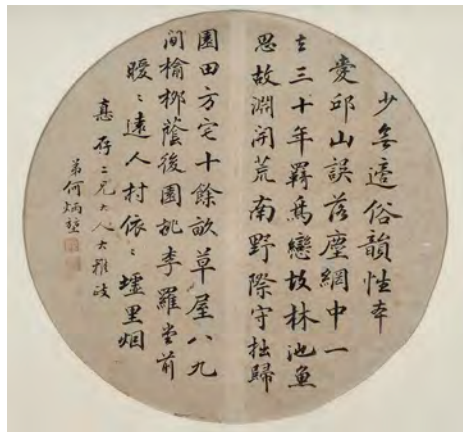 少無適俗韻性本
愛邱山誤落塵網中一
去三十年羈鳥戀故林池魚
思故淵開荒南野際守拙歸
園田方宅十餘畝草屋八九
間榆柳蔭後園桃李羅堂前
曖〻遠人村依〻墟里烟
存二兄大人大雅政
弟何炳堃